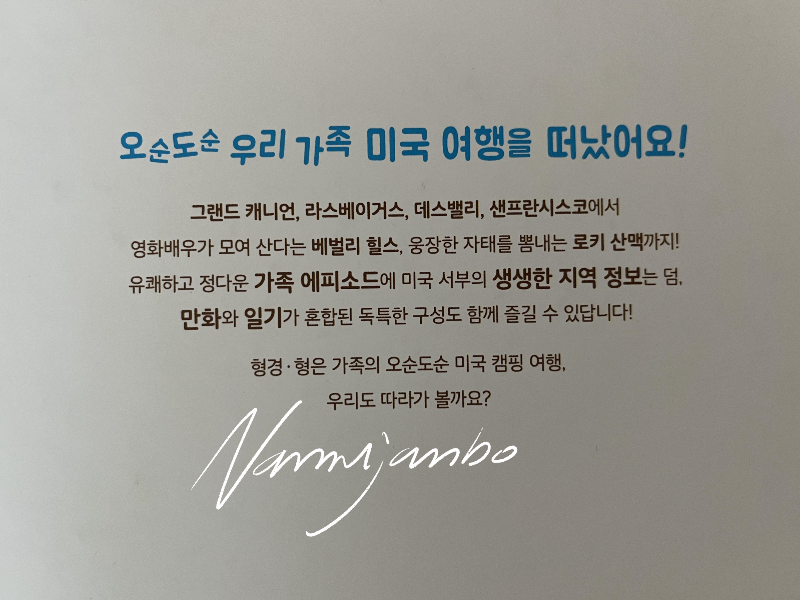 오순도순 우리 가족 미국 여행을 떠났어요!
그랜드 캐니언, 라스베이거스, 데스밸리, 샌프란시스코에서
영화배우가 모여 산다는 베벌리 힐스, 웅장한 자태를 뽐내는 로키 산맥까지!
유쾌하고 정다운 가족 에피소드에 미국 서부의 생생한 지역 정보는 덤,
만화와 일기가 혼합된 독특한 구성도 함께 즐길 수 있답니다!
형경·형은 가족의 오순도순 미국 캠핑 여행,
우리도 따라가 볼까요?